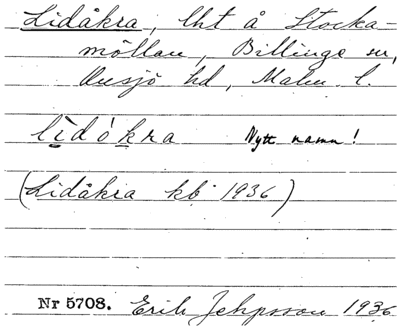 Lidåkra, lht å Stocka-
möllan, Billinge sn,
Onsjö hd, Malm. l.
lìdókra Nytt namn!
(Lidåkra kb 1936)
Nr 5708. Erik Jeppsson 1936